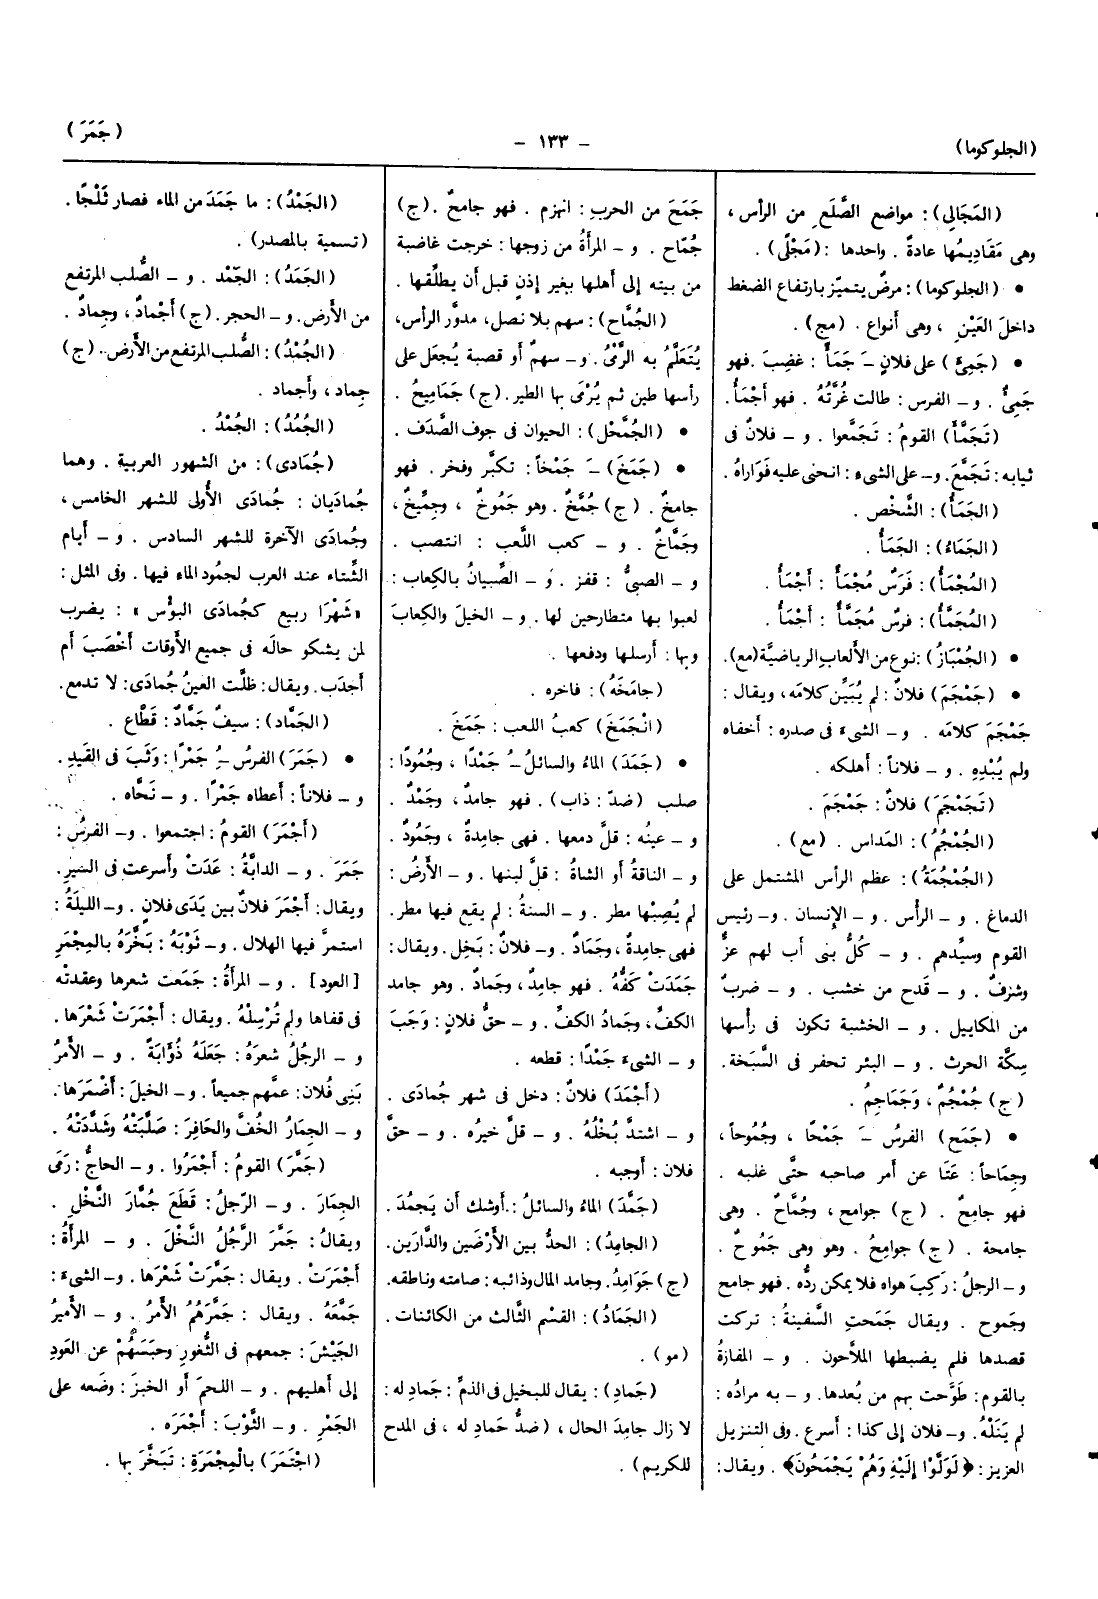 (الجلوكوما)
– ١٣٣ –
(جَمَرَ)
(المَجَالِى): مواضع الصَّلَعِ من الرأس،
وهى مَقَادِيمُها عادةً . واحدها : (مَجْلًى) .
• (الجلوكوما): مرضٌ يتميّز بارتفاع الضغط
داخلَ العَيْنِ ، وهى أنواع . (مج) .
• (جَمِئَ) على فلانٍ ـَ جَمَأً : غضِبَ . فهو
جَمِئٌ . و – الفرس: طالت غُرَّتُهُ . فهو أَجْمَأُ.
(تَجَمَّأَ) القومُ: تَجَمَّعوا . و – فلانٌ فى
ثيابه: تَجَمَّعَ. و– على الشىء: انحنى عليه فَوَاراهُ.
(الجَمَأُ): الشَّخْص .
(الجَمَاءُ): الجَمَأُ .
(المُجْمَأُ): فَرَسٌ مُجْمَأٌ : أَجْمَأُ .
(المُجَمَّأُ): فرسٌ مُجَمَّأٌ : أَجْمَأُ .
• (الجُمْبَازُ): نوع من الألعاب الرياضيَّة (مع).
• (جَمْجَمَ) فلانٌ: لم يُبَيِّن كلامَه، ويقال:
جَمْجَمَ كلامَه . و – الشىءَ فى صدره: أخفاه
ولم يُبْدِهِ . و – فلاناً: أهلكه .
(تَجَمْجَمَ) فلانٌ: جَمْجَمَ .
(الجُمْجُمُ): المَداس . (مع) .
(الجُمْجُمَةُ): عظم الرأس المشتمل على
الدماغ . و – الرأس . و – الإنسان . و– رئيس
القوم وسيِّدهم . و – كُلُّ بنى أب لهم عزٌّ
وشرَفٌ . و – قدح من خشب . و – ضربٌ
من المكاييل . و – الخشبة تكون فى رأسها
سِكَّة الحرث . و – البئر تحفر فى السَّبَخة.
(ج) جُمْجُمٌ، وَجَمَاجِمُ .
• (جَمَحَ) الفرسُ ـَ جَمْحًا ، وجُمُوحاً،
وجِماحاً: عَتَا عن أمر صاحبه حتَّى غلبه .
فهو جامِحٌ . (ج) جوامح، وجُمَّاحٌ. وهى
جامحة . (ج) جوامِحُ . وهو وهى جَمُوحٌ .
و –الرجلُ: رَكِبَ هواه فلا يمكن ردُّه. فهو جامح
وجَموح . ويقال جَمَحتِ السَّفينةُ: تركت
قصدها فلم يضبطها الملاَّحون . و – المفازةُ
بالقوم: طَوَّحت بهم من بُعدها. و – به مرادُه:
لم يَنَلْهُ. و– فلان إلى كذا: أسرع. وفى التنزيل
العزيز: ﴿لَوَلَّوْا إِلَيْهِ وَهُمْ يَجْمَحُونَ﴾ . ويقال:
جَمَحَ من الحربِ: انهزم . فهو جامحٌ . (ج)
جُمَّاح . و – المرأةُ من زوجها: خرجت غاضبة
من بيته إلى أهلها بغير إذنٍ قبل أن يطلِّقها .
(الجُمَّاح): سهم بلا نصل، مدوَّر الرأس،
يُتَعَلَّمُ به الرَّمْىُ. و– سهمٌ أو قصبة يُجعَل على
رأسها طين ثم يُرْمَى بها الطير. (ج) جَمَامِيحُ .
• (الجُمَّحْل): الحيوان فى جوف الصَّدَف .
• (جَمَخَ) ـَ جَمْخاً: تكبَّر وفخر . فهو
جامخٌ . (ج) جُمَّخٌ . وهو جَمُوخٌ ، وجِمِّيخٌ،
وجَمَّاخٌ . و – كعب اللَّعب : انتصب .
و – الصبىُّ : قفز . و – الصِّبيانُ بالكِعاب :
لعبوا بها متطارحين لها . و – الخيلَ والكِعابَ
وبها: أرسلها ودفعها .
(جامَخَهُ): فاخره .
(انْجَمَخَ) كعبُ اللعب: جَمَخَ .
• (جَمَدَ) الماءُ والسائلُ ـُ جَمْدًا ، وجُمُودًا:
صلب (ضدّ: ذاب) . فهو جامدٌ، وجَمْدٌ .
و – عينُه : قلَّ دمعها . فهى جامدةٌ ، وجَمُودٌ .
و – الناقةُ أو الشاةُ : قلَّ لبنها . و – الأرضُ :
لم يُصِبْها مطر . و – السنةُ : لم يقع فيها مطر.
فهى جامِدةٌ، وجَمَادٌ . و– فلانٌ: بَخِل . ويقال:
جَمَدَتْ كَفُّهُ . فهو جامِدٌ، وجَمادٌ . وهو جامد
الكفِّ، وجَمادُ الكفِّ . و – حقُّ فلانٍ: وَجَبَ
و – الشىءَ جَمْدًا : قطعه .
(أَجْمَدَ) فلانٌ: دخل فى شهر جُمادَى .
و – اشتدَّ بُخْلُهُ . و – قلَّ خيرُه . و – حقَّ
فلان : أوجبه .
(جَمَّدَ) الماءُ والسائلُ : أوشك أن يَجمُدَ .
(الجامِدُ): الحدُّ بين الأَرْضَين والدَّارَين.
(ج) جَوَامِدُ. وجامد المال وذائبه: صامته وناطقه.
(الجَمَادُ): القسْم الثَّالث من الكائنات .
(مو) .
(جَمادِ): يقال للبخيل فى الذمِّ: جَمادِ له:
لا زال جامِدَ الحال، (ضدّ حَمادِ له ، فى المدح
للكريم) .
(الجَمْدُ): ما جَمَدَ من الماء فصار ثَلْجًا .
(تسمية بالمصدر) .
(الجَمَدُ): الجَمْد . و – الصُّلب المرتفع
من الأَرض. و– الحجر. (ج) أَجْمادٌ، وجِمادٌ .
(الجُمْدُ): الصُّلب المرتفع من الأَرض. (ج)
جِماد ، وأَجماد .
(الجُمُدُ): الجُمْدُ .
(جُمَادى): من الشهور العربية . وهما
جُمادَيان : جُمادَى الأُولى للشهر الخامس ،
وجُمادَى الآخرة للشهر السادس . و – أَيام
الشِّتاء عند العرب لجمُود الماء فيها . وفى المثل:
«شَهْرَا ربيع كجُمادَى البُؤْس» : يضرب
لمن يشكو حالَه فى جميع الأَوقات أَخْصَبَ أَم
أَجدَب. ويقال: ظلَّت العينُ جُمادَى: لا تدمع.
(الجَمَّاد): سيفٌ جَمَّادٌ: قَطَّاع .
• (جَمَرَ) الفرسُ ـُ جَمْرًا: وَثَبَ فى القَيدِ .
و – فلاناً: أعطاه جَمْرًا . و – نَحَّاه .
(أَجْمَرَ) القومُ: اجتمعوا . و– الفرسُ :
جَمَرَ . و – الدابَّةُ : عَدَتْ وأَسرعت فى السَّيرِ.
ويقال: أَجْمَرَ فلانٌ بين يَدَى فلانٍ . و– الليلةُ :
استمرَّ فيها الهلال . و– ثَوْبَهُ: بَخَّرَهُ بالمِجْمَرِ
[العود] . و – المرأةُ : جَمَعت شعرها وعقدتْه
فى قفاها ولم تُرْسِلْهُ . ويقال: أَجْمَرَتْ شَعْرَها .
و – الرجلُ شعرَهُ: جَعَلَهُ ذُؤَابَةً . و – الأَمرُ
بَنِى فُلان: عمَّهم جميعاً . و– الخيلَ: أَضْمَرَها.
و – الجِمارُ الخُفَّ والحَافِرَ: صَلَّبَتْهُ وشَدَّدَتْهُ .
(جَمَّرَ) القومُ: أَجْمَرُوا . و– الحاجُّ: رَمَى
الجِمَارَ . و – الرّجلُ: قَطَعَ جُمَّارَ النَّخْلِ .
ويقالُ: جَمَّرَ الرَّجُلُ النَّخْلَ . و – المرأةُ :
أَجْمَرَتْ . ويقال: جَمَّرَتْ شَعْرَها . و– الشىءَ:
جَمَّعَهُ . ويقال : جَمَّرَهُمُ الأَمرُ . و – الأَميرُ
الجَيْشَ: جمعهم فى الثُّغورِ وحبَسَهُمْ عن العَودِ
إلى أهليهم . و – اللحمَ أو الخبزَ: وضَعه على
الجَمْرِ . و – الثَّوْبَ: أَجْمَرَه .
(اجْتَمَرَ) بالْمِجْمَرَةِ: تَبَخَّرَ بها .